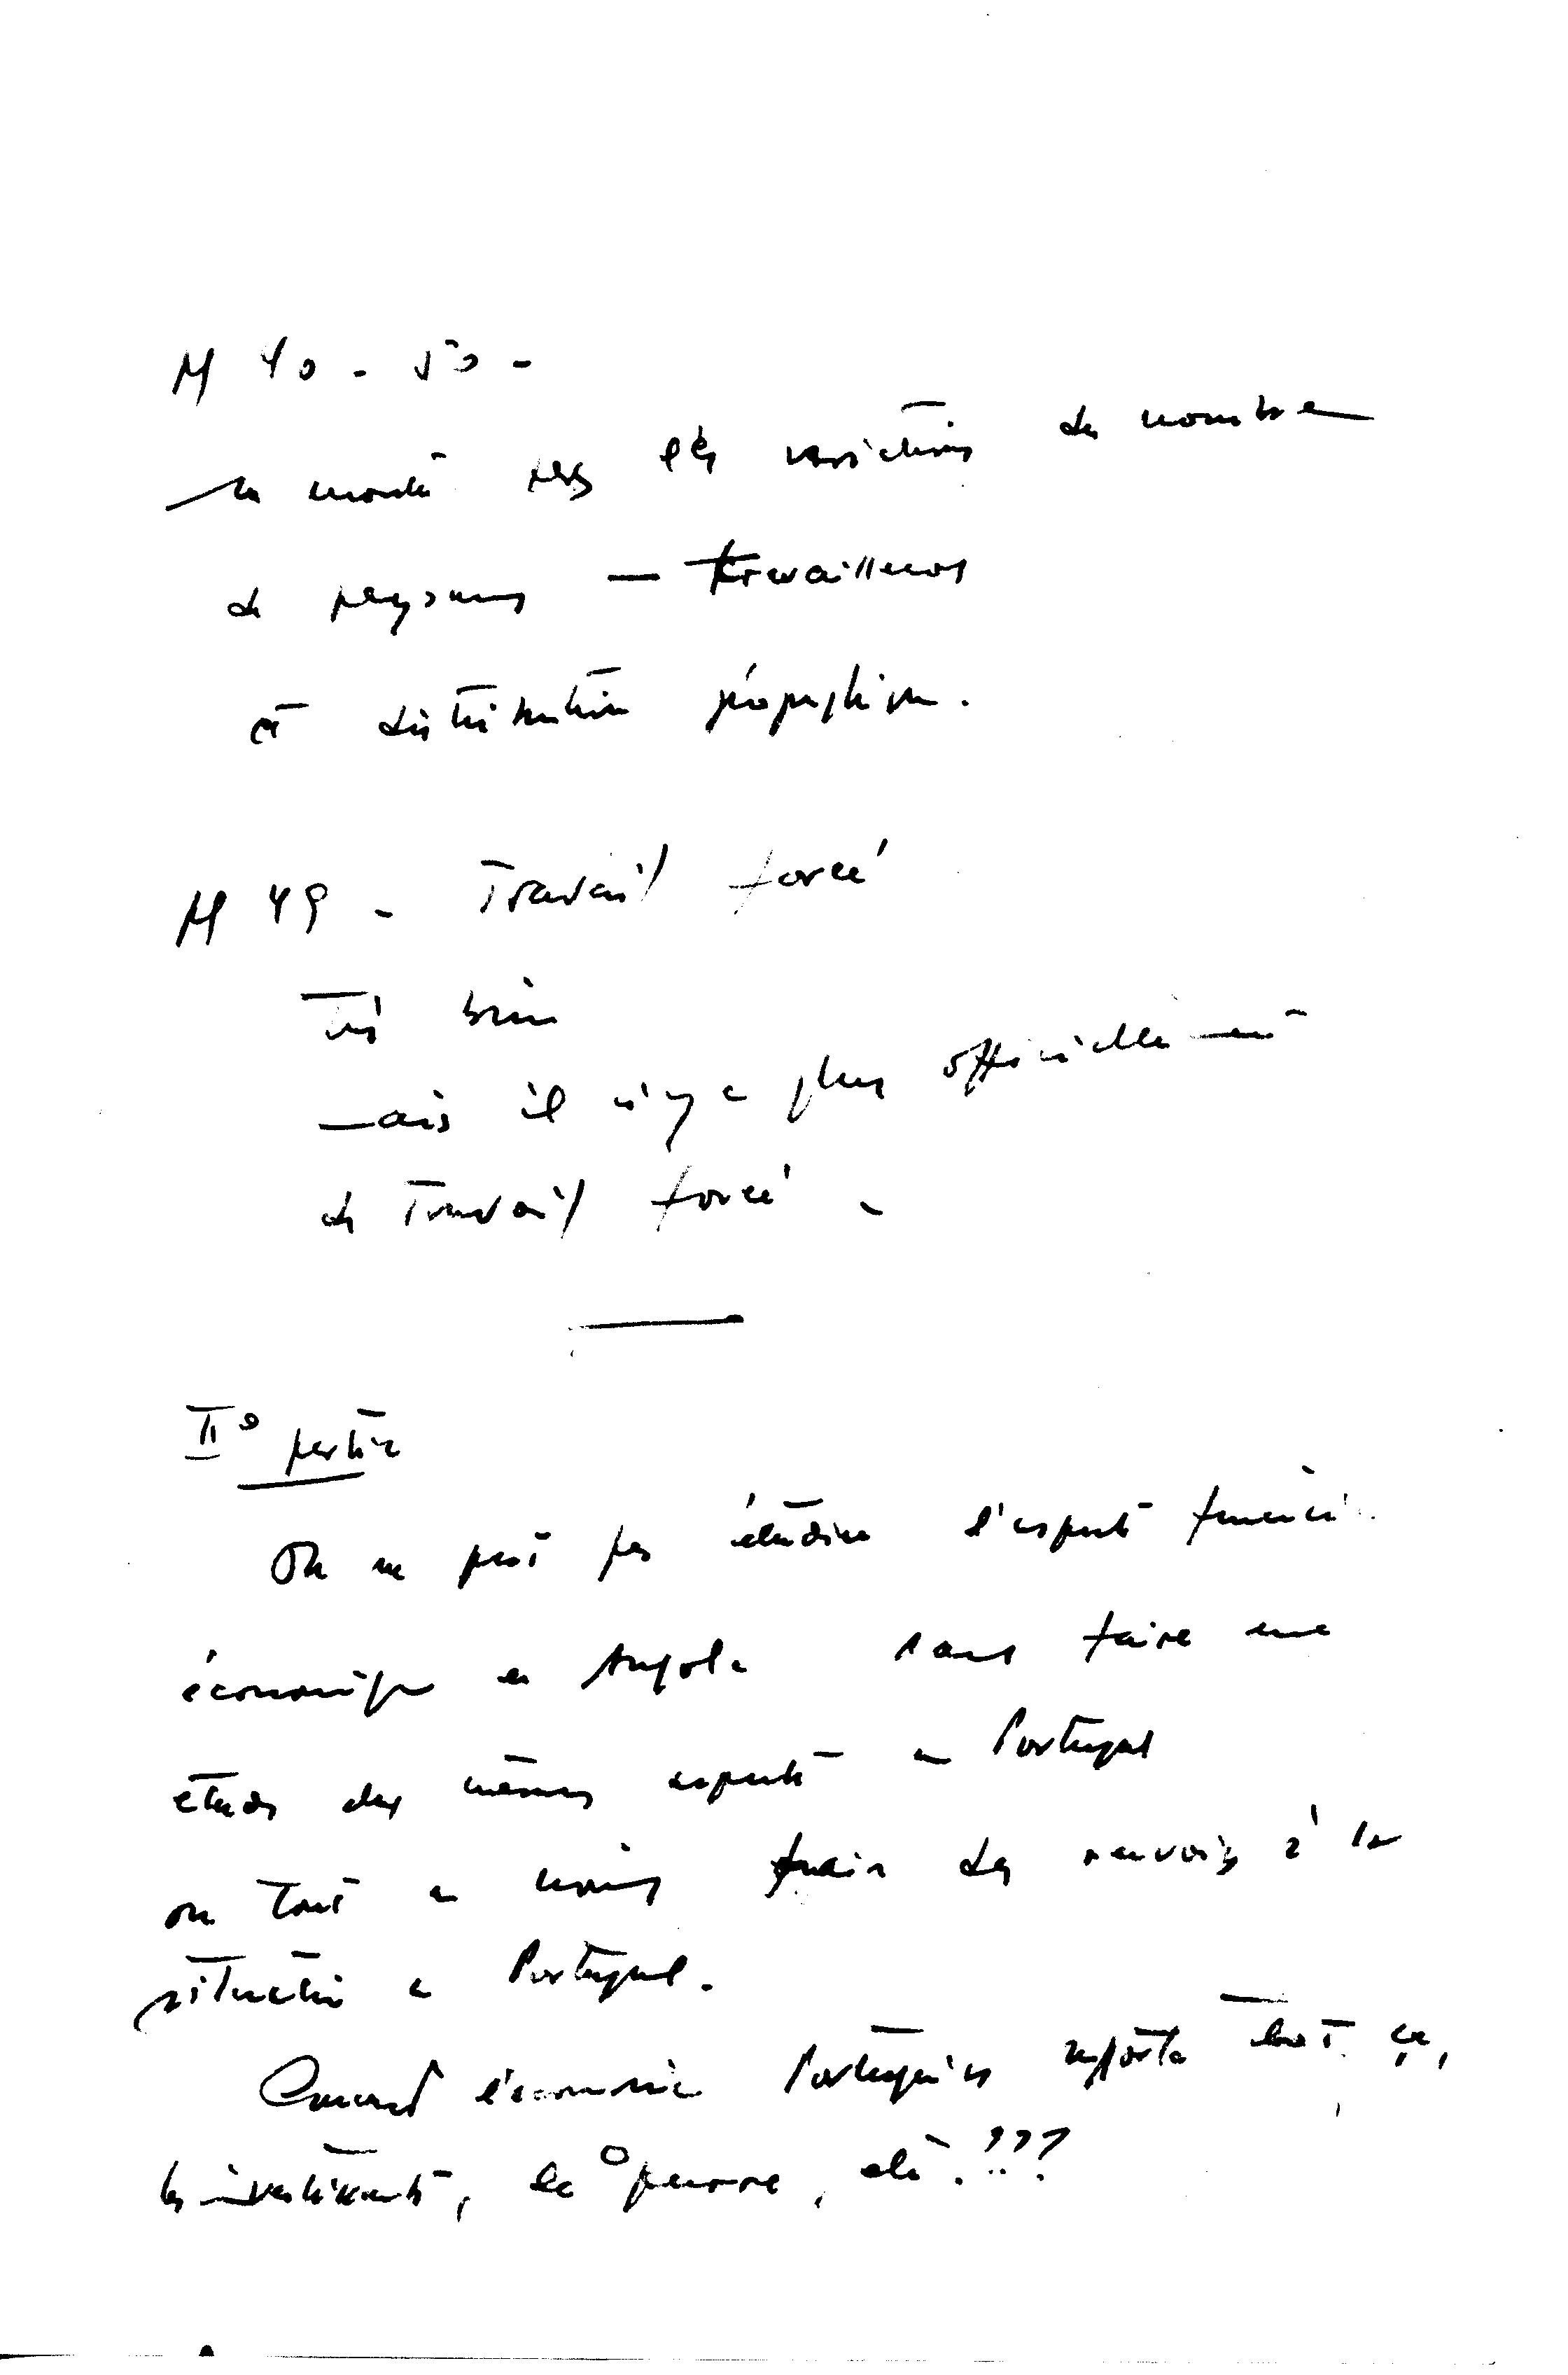 M 40 - 50 -
ne montre pas les variations de nombre
de paysans — travailleurs
et distribution géographique.
M 49 - Travail forcé
Très bien
mais il n'y a plus officiellement
de Travail forcé -
II° partie
On ne peut pas étudier l'aspect financier
économique en Angola sans faire une
étude des mêmes aspects en Portugal
ou tout au moins faire des renvois à la
situation en Portugal.
Comment l'économie Portugaise supporte tout ça,
les investissements, la guerre, etc. ???